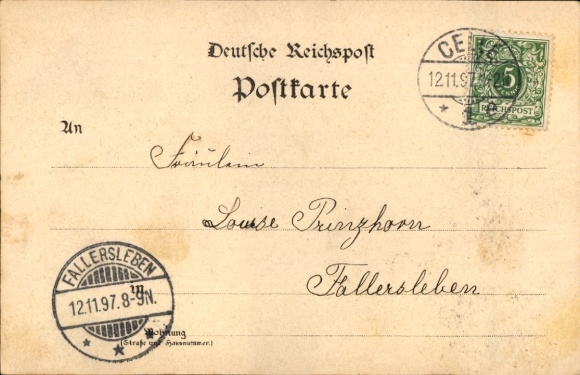 Deutsche Reichspost
Postkarte
CELLE
12.11.97.
* 1 c
5
REICHSPOST
An
Fräulein
Louise Prinzhorn
Fallersleben
FALLERSLEBEN
in
12.11.97. 8-9N.
* * *
Wohnung
(Straße und Hausnummer.)